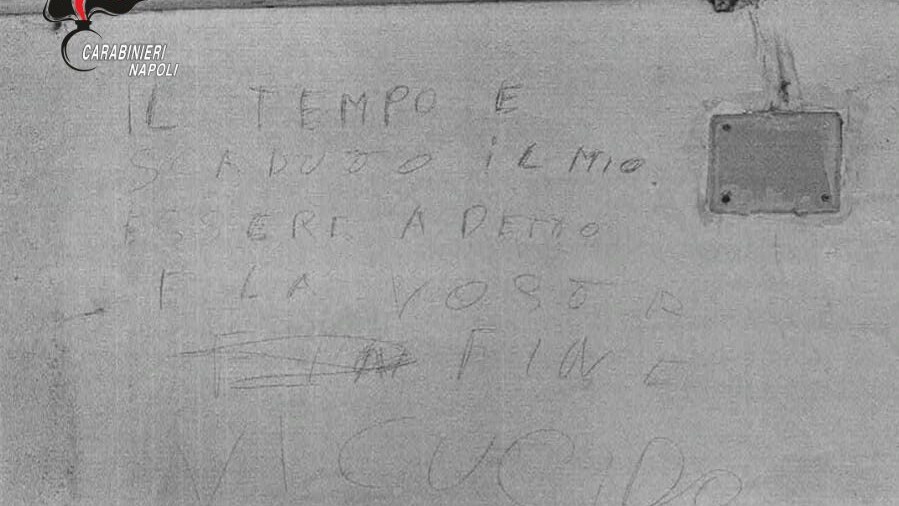 CARABINIERI
NAPOLI
IL TEMPO E
SCADUTO iL MIO.
ESSERE A DETTO
E LA VOSTRA
FINE
VI UCCIDO